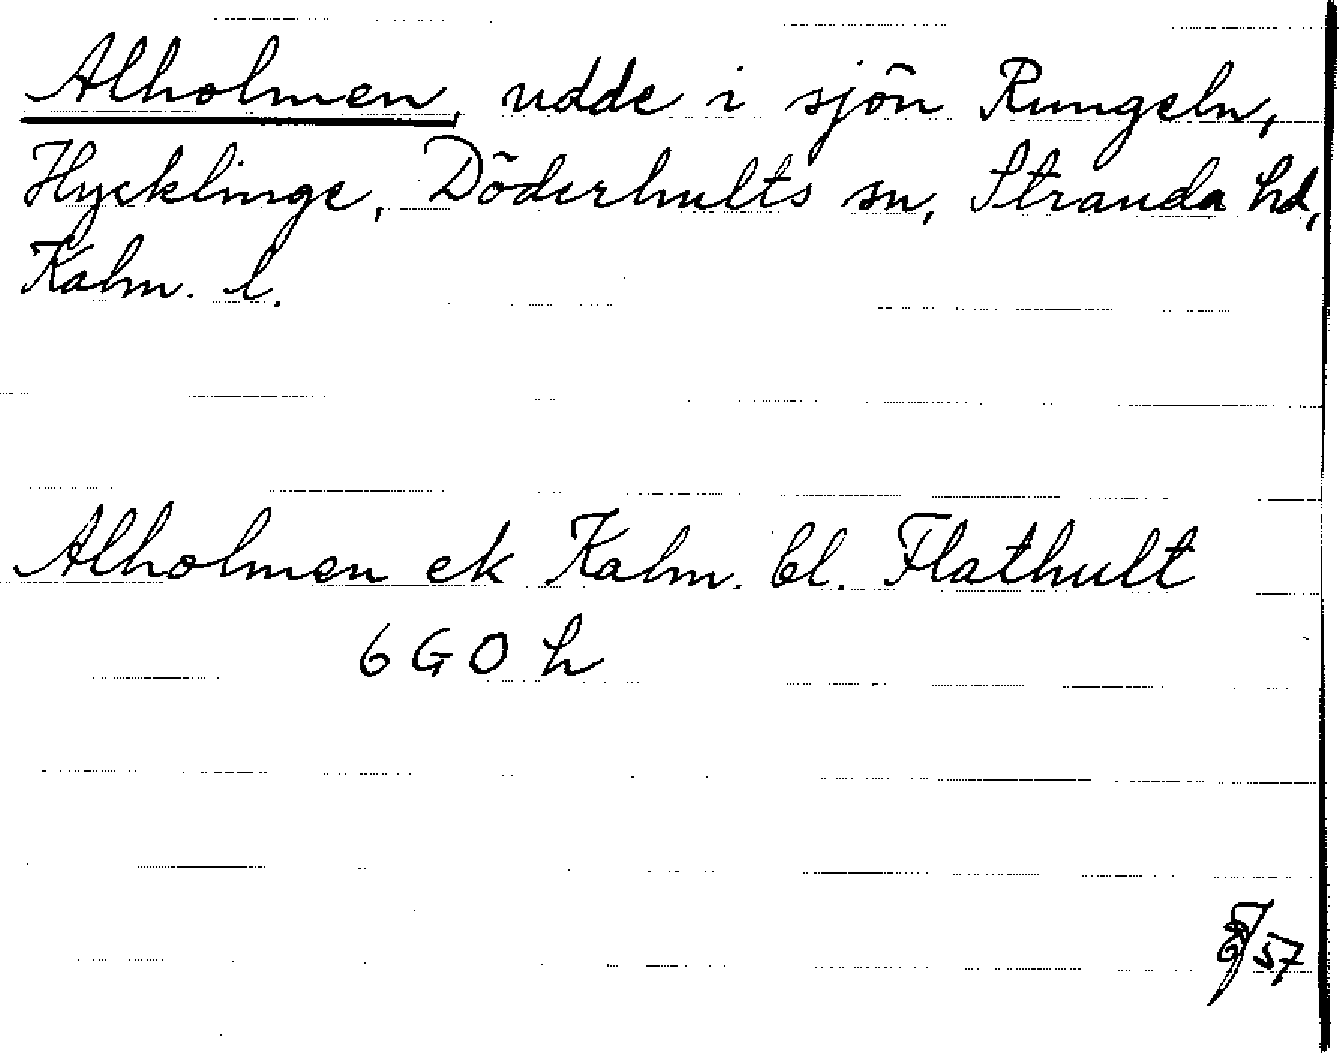 Alholmen, udde i sjön Rungeln,
Hycklinge, Döderhults sn, Stranda hd,
Kalm. l.
Alholmen ek Kalm. bl. Flathult
6 G O h
57